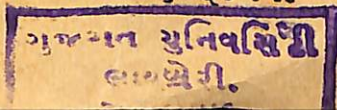 ગુજરાત યુનિવર્સિટી
લાયબ્રેરી.